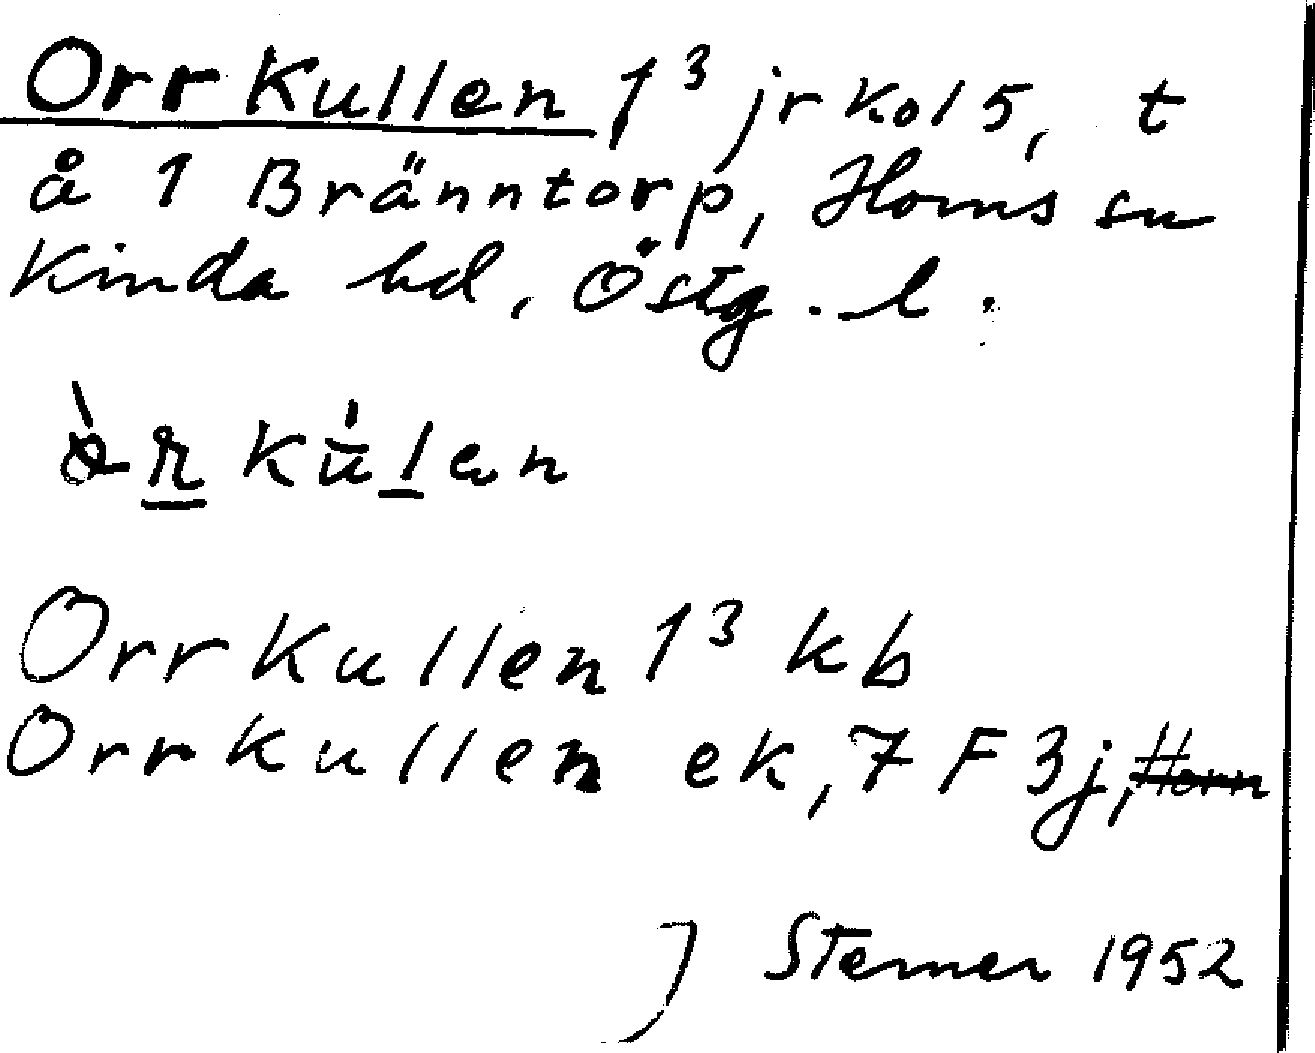 Orrkullen 1³ jr kol 5, t
å 1 Bränntorp, Horns sn
Kinda hd, Östg. l.
Orrkullen 1³ kb
Orrkullen ek, 7 F 3j, Horn
J Sterner 1952